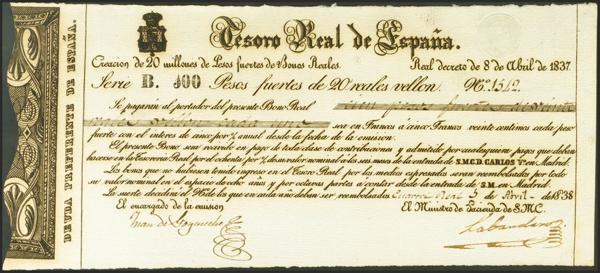 DEUDA PREFERENTE DE ESPAÑA.
Tesoro Real de España.
Creacion de 20 millones de Pesos fuertes de Bonos Reales. Real decreto de 8 de Abril de 1837.
Serie B. 100 Pesos fuertes de 20 reales vellon. Nº. 1512
Se pagarán al portador del presente Bono Real cien pesos fuertes de veinte
reales vellon cada uno sea en Francos á cinco Francos veinte centimos cada peso
fuerte con el interes de cinco por % anual desde la fecha de la emision.
El presente Bono sera recivido en pago de toda clase de contribuciones y admitido por cualesquiera pagos que deban
hacerse en la tesoreria Real por el ochenta por % de su valor nominal á los seis meses de la entrada de S.M.C.D. CARLOS Vº. en Madrid.
Los bonos que no hubiesen tenido ingreso en el Tesoro Real por los medios espresados seran reembolsados por todo
su valor nominal en el espacio de ocho años y por octavas partes á contar desde la entrada de S.M. en Madrid.
La suerte decidirá el Nº de los que en cada año deban ser reembolsados Cuartel Real 5 de Abril de 1838
El encargado de la emision El Ministro de Hacienda de S.M.C.
Juan de Labandero